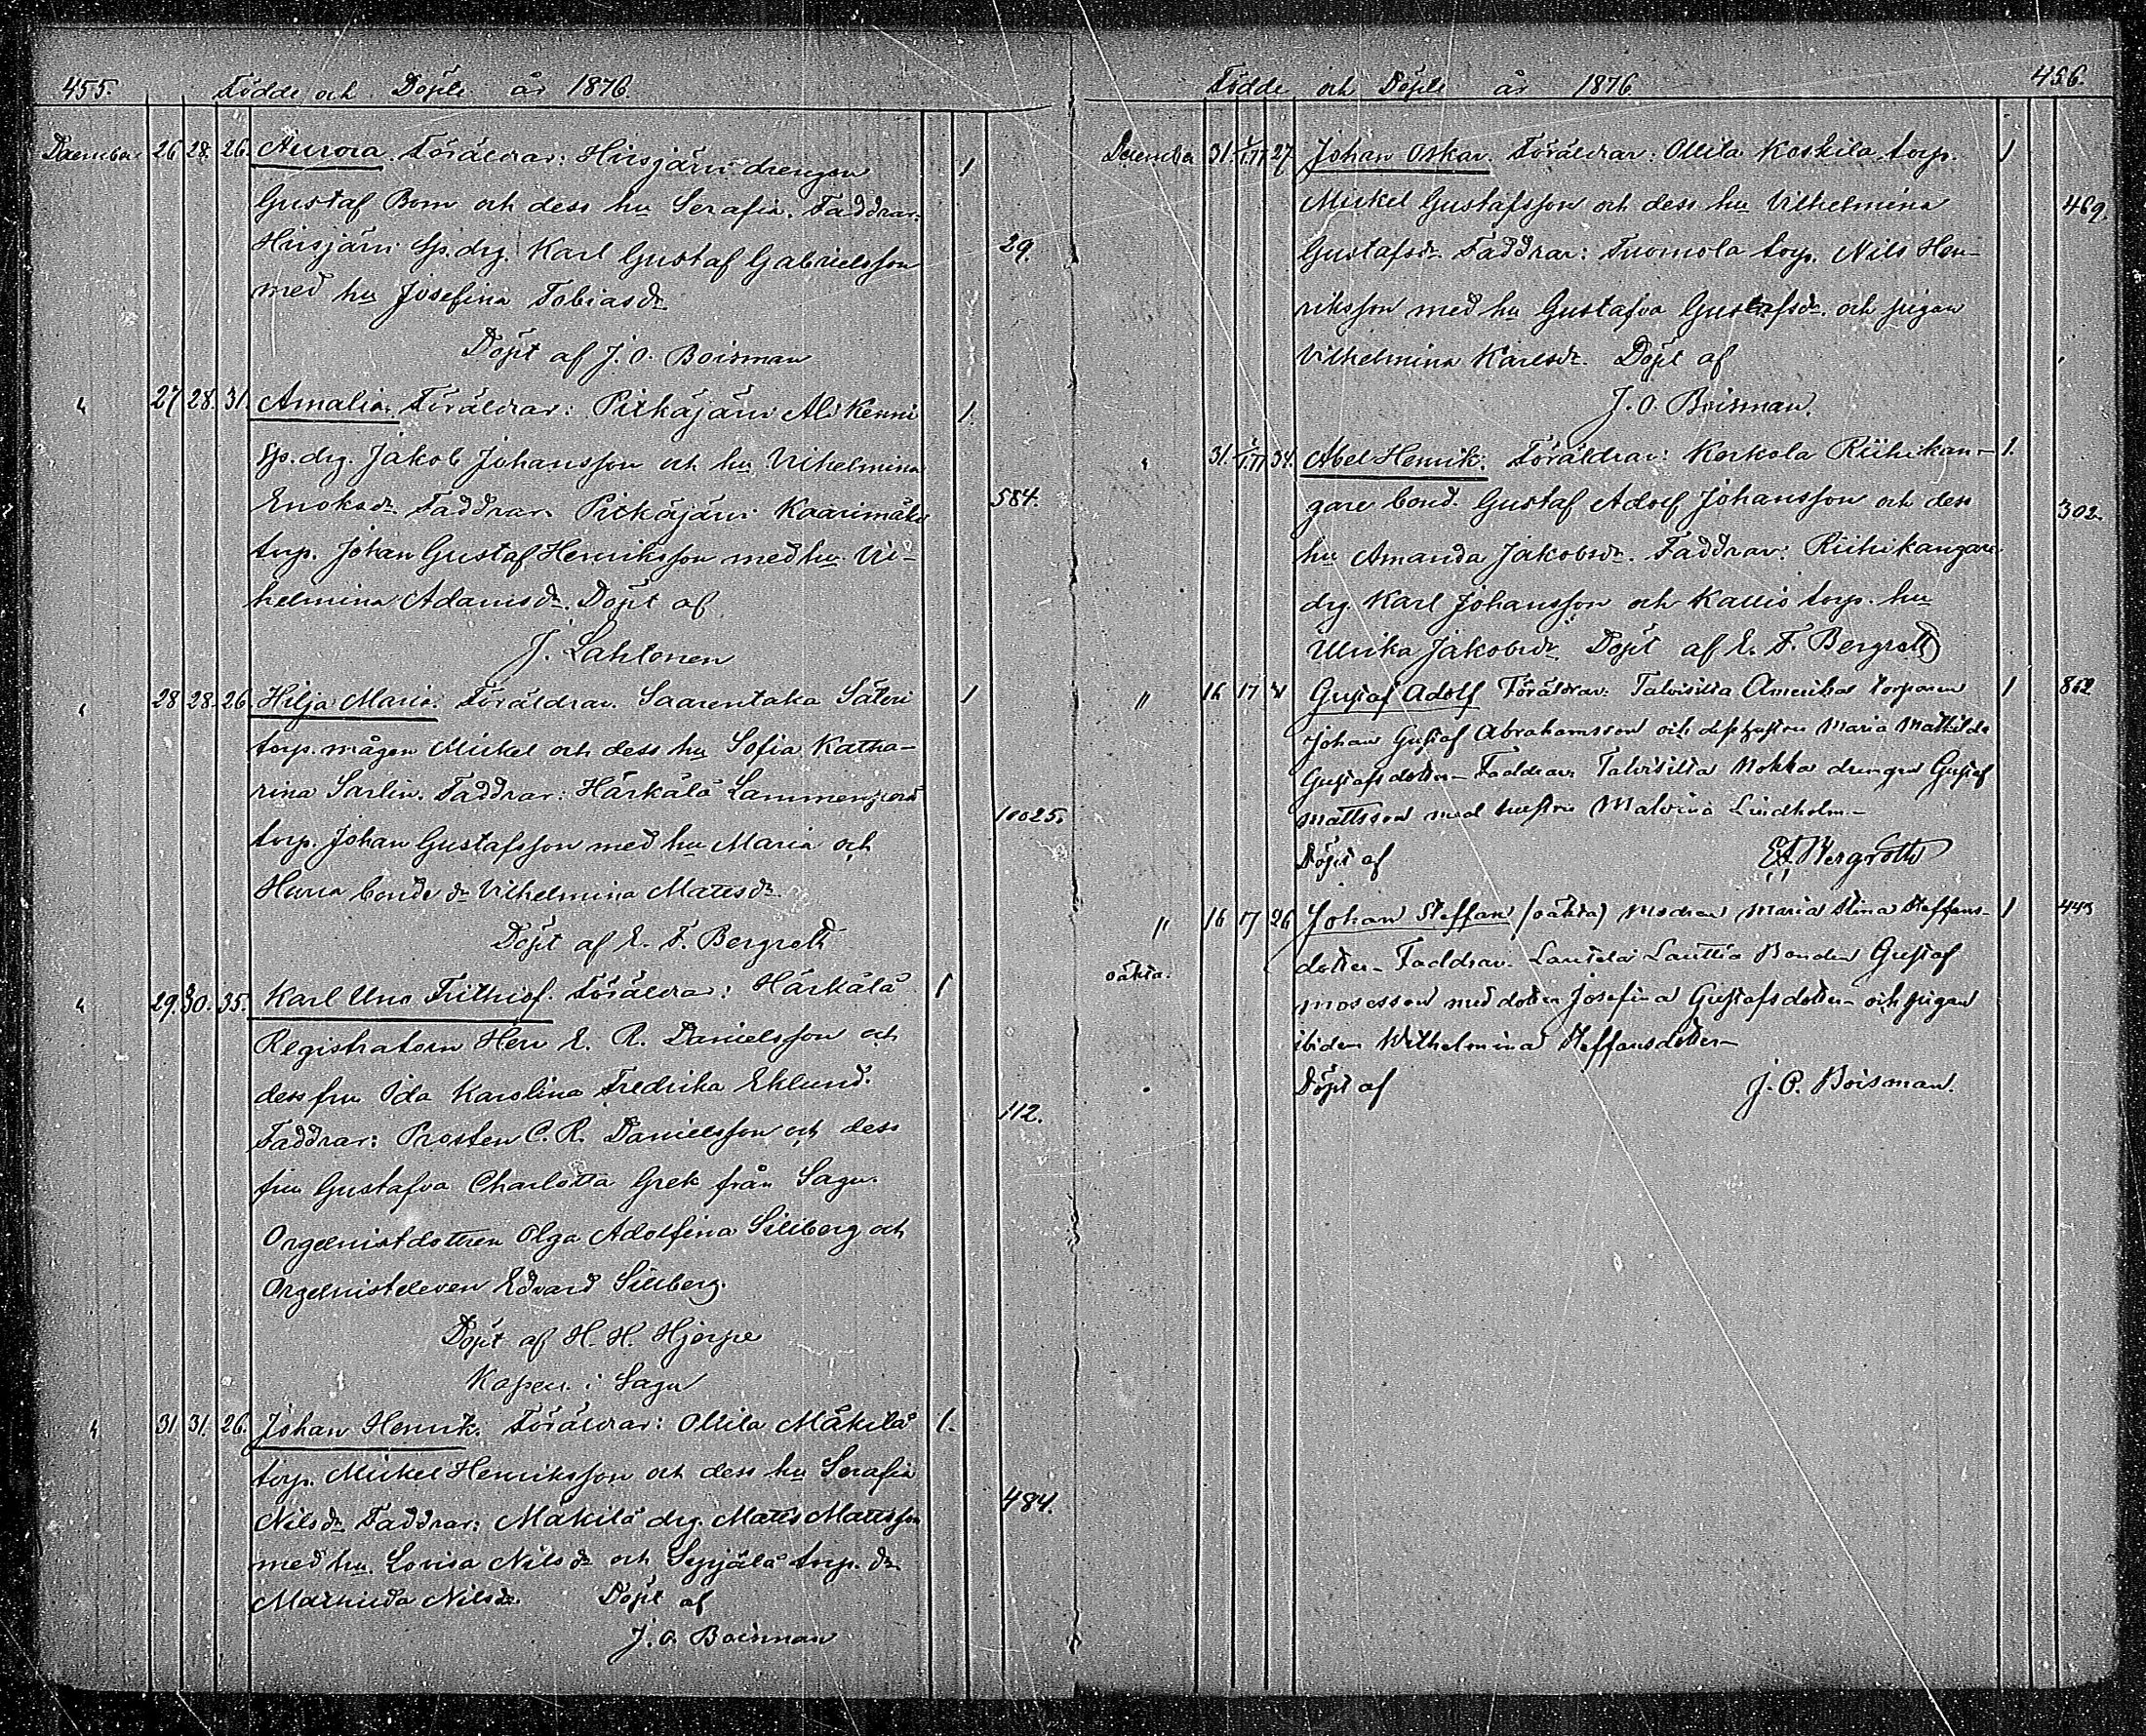 455. Födde och Döpte år 1876.
December 26 28. 26. Aurora. Föräldrar: Hirsjärvi drengen 1
Gustaf Bom och dess hu Serafia. Faddrar.
Hirsjärvi Sp.drg. Karl Gustaf Gabrielsson 29.
med hu Josefina Tobiasdr
Döpt af J. O. Boisman
" 27 28. 31. Amalia. Föräldrar: Pitkäjärvi Ali Kenni 1.
Sp.drg. Jakob Johansson och hu Vilhelmina
Enoksdr Faddrar. Pitkäjärvi Kaarimäki 584.
torp. Johan Gustaf Henriksson med hu Vil-
helmina Adamsdr. Döpt af
J. Lahtonen
" 28 28. 26 Hilja Maria. Föräldrar. Saarentaka Säteri 1
torp.mågen Mickel och dess hu Sofia Katha-
rina Sarlin. Faddrar: Härkälä Lammenperä
10025.
torp. Johan Gustafsson med hu Maria och
bondedr Vilhelmina Matsdr
Döpt af E. F. Bergroth
" 29. 30. 35. Karl Uno Frithiof. Föräldrar: Härkälä 1
Registratorn Herr E. R. Danielsson och
dess fru Ida Karolina Fredrika Eklund.
Faddrar: Prosten C. R. Danielsson och dess 112.
fru Gustafva Charlotta Grek från Sagu.
Orgelnistdottren Olga Adolfina Sillberg och
Orgelnisteleven Edvard Sillberg.
Döpt af H. H. Hjerpe
Kapell. i Sagu
" 31 31. 26. Johan Henrik. Föräldrar: Ollila Mäkilä 1.
torp. Mickel Henriksson och dess hu Serafia
Nilsdr Faddrar: Mäkilä drg. Matts Mattsson 484.
med hu. Lovisa Nilsdr och Syrjälä torp. dr
Mathilda Nilsdr. Döpt af
J. O. Boisman
Födde och Döpte år 1876 456.
December 31. 1/1.77 27. Johan Oskar. Föräldrar: Ollila Koskila torp. 1
Mickel Gustafsson och dess hu Vilhelmina 469.
Gustafsdr. Faddrar: Tuomola torp. Nils Hen-
riksson med hu Gustafva Gustafsdr. och pigan
Vilhelmina Karlsdr. Döpt af
J. O. Boisman.
" 31. 1/1.77 34. Abel Henrik. Föräldrar: Korkola Riihikan- 1.
gare bond. Gustaf Adolf Johansson och dess 302.
hu Amanda Jakobsdr. Faddrar: Riihikangare
drg. Karl Johansson och Kallio torp. hu
Ulrika Jakobsdr. Döpt af E. F. Bergroth
" 16 17 Gustaf Adolf Föräldrar: Talvisilta Amerika torparen 1 862
Johan Gustaf Abrahamsson och dess hustru Maria Mathilda
Gustafsdotter - Faddrar: Talvisilta Nokka drengen Gustaf
Mattsson med hustru Malvina Lindholm -
Döpt af EF Bergroth
" 16 17 26 Johan Steffan (oäkta) Modren Maria Stina Steffans- 1 443
oäkta. dotter - Faddrar. Lautela Lauttia Bonden Gustaf
Mosesson med dotter Josefina Gustafsdotter - och pigan
ibidem Wilhelmina Steffansdotter -
Döpt af J. O. Boisman.